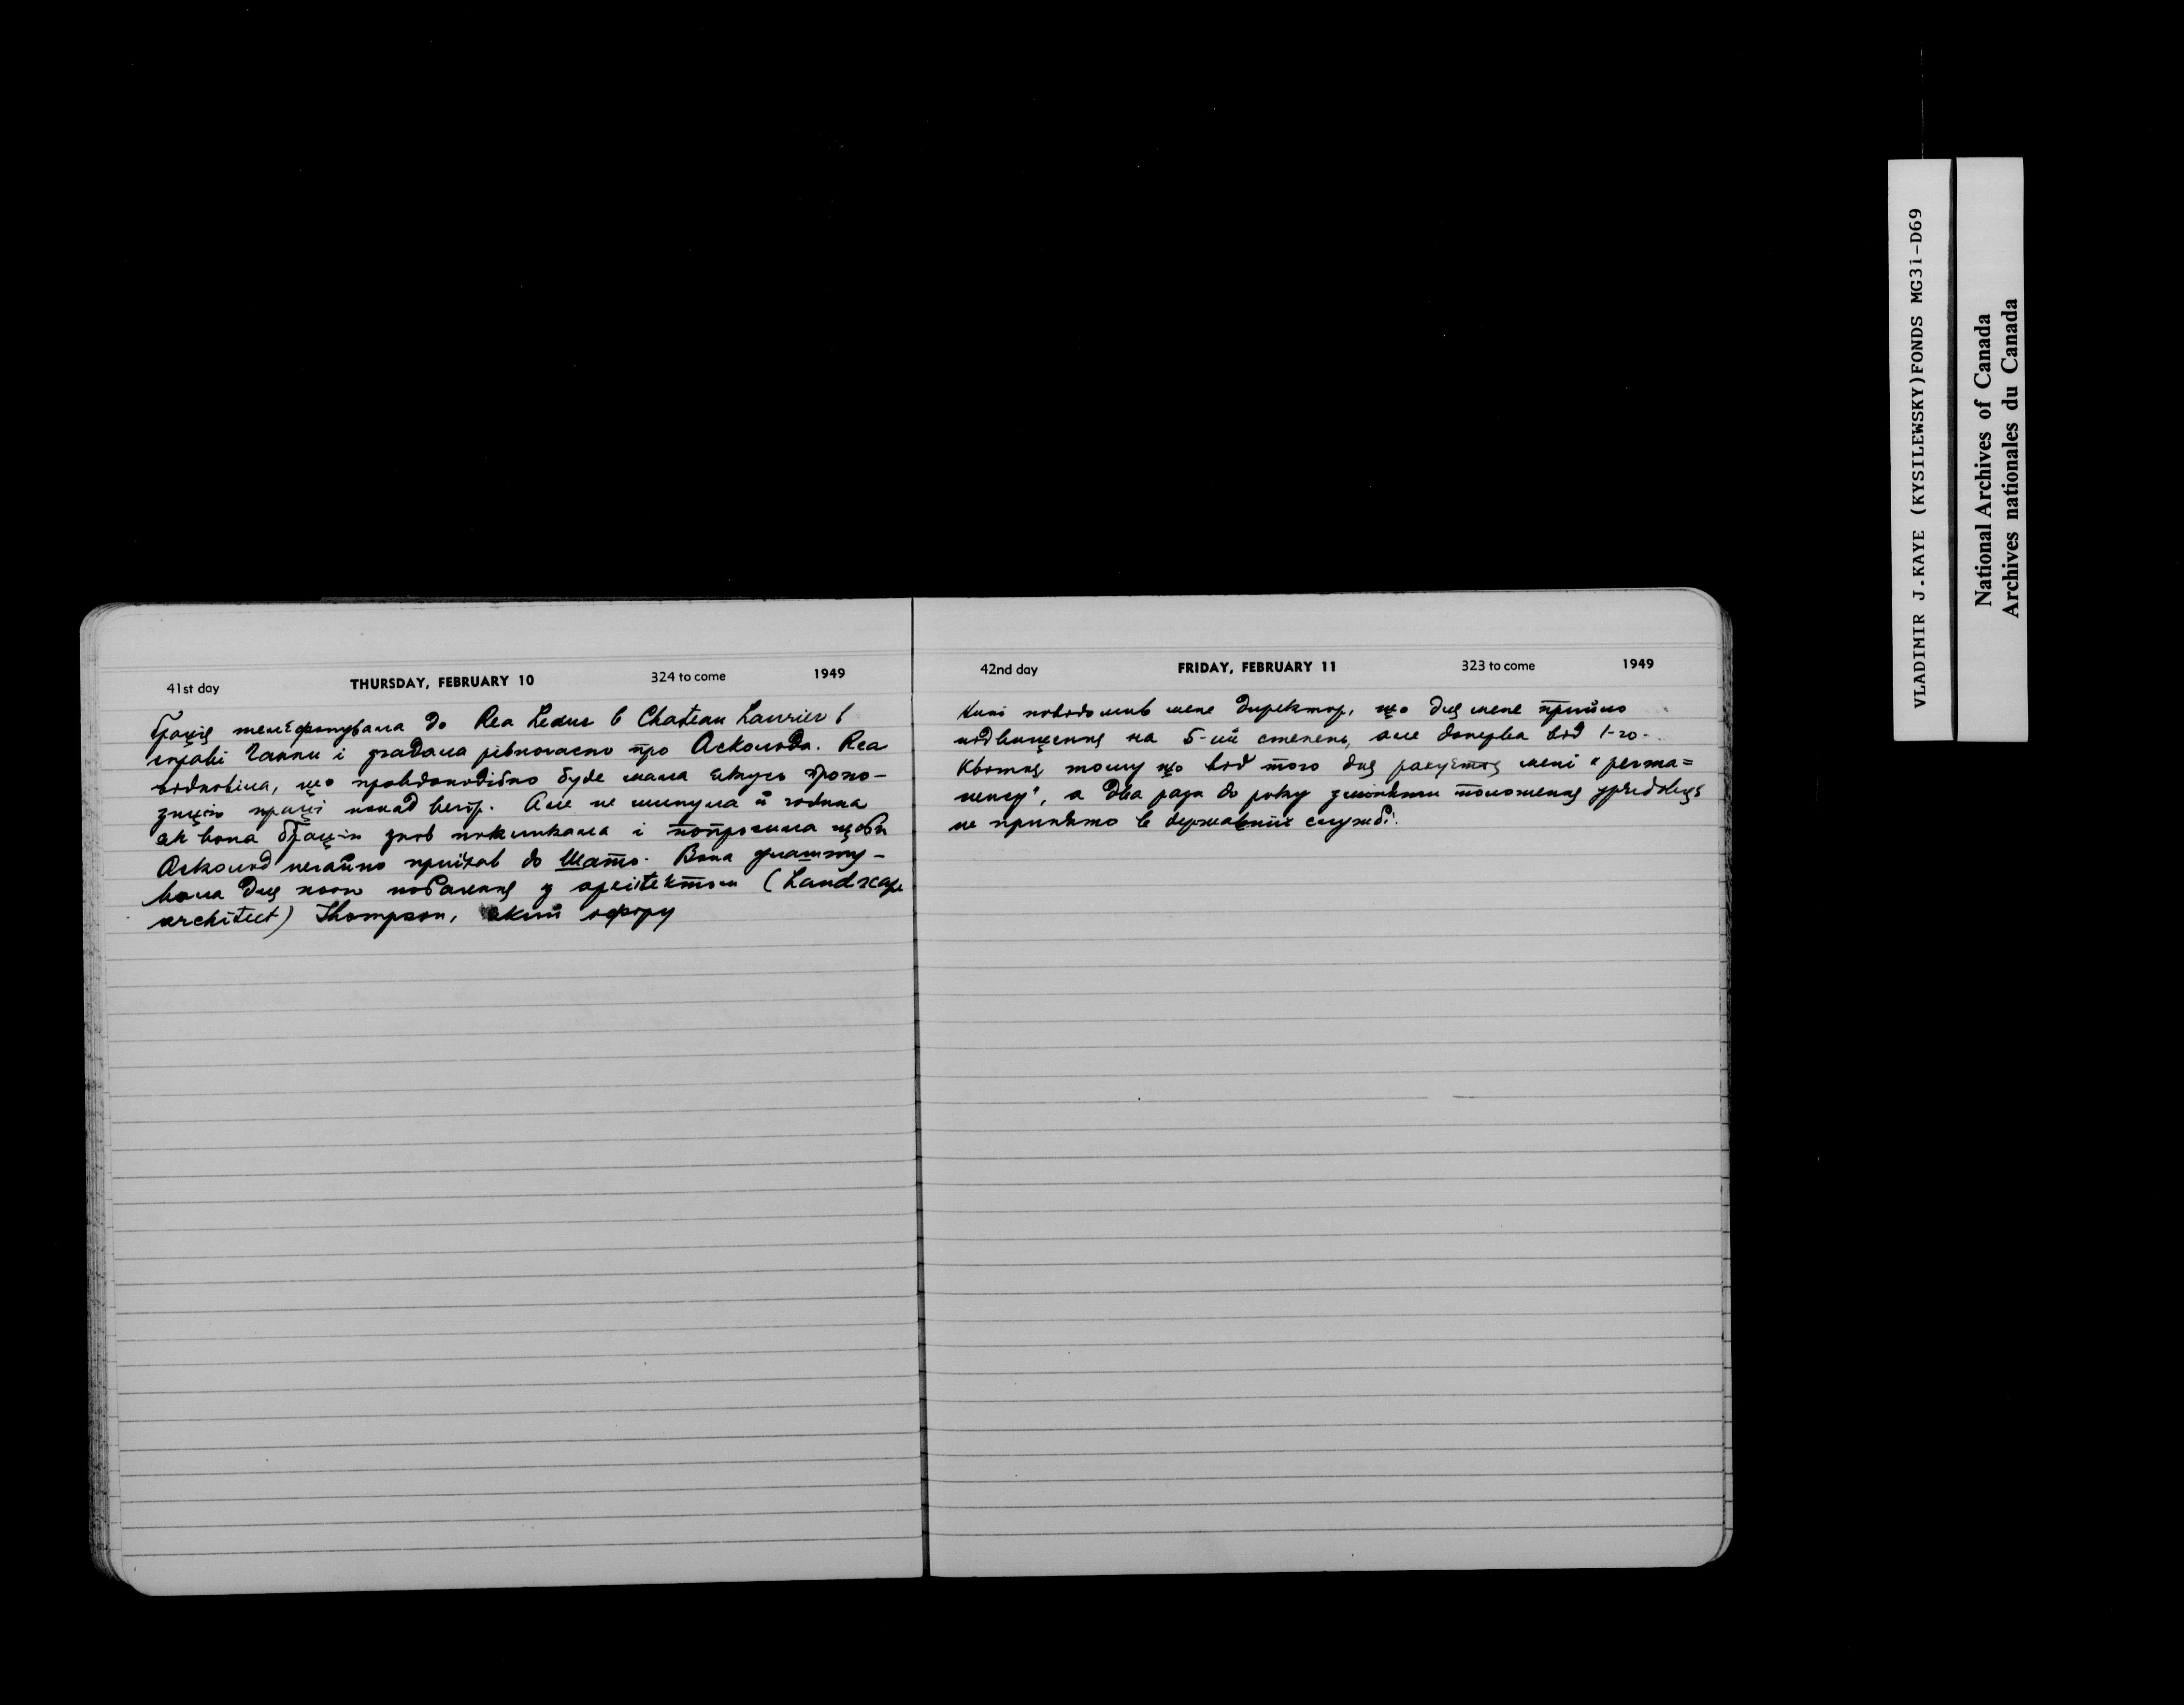 41st day THURSDAY, FEBRUARY 10 324 to come 1949
Ґрація телєфонувала до Rea Leduc в Chateau Laurier в
справі Ганни і згадала рівночасно про Аскольда. Rea
відповіла, що правдоподібно буде мала якусь пропо-
зицію праці понад вечір. Але не минула й година
як вона Ґрацію знов покликала і попросила щоби
Аскольд негайно приїхав до Шато. Вона улашту-
вала для нього побачення з архітектом (Landscape
architect) Thompson, який
42nd day FRIDAY, FEBRUARY 11 323 to come 1949
Нині повідомив мене директор, що для мене прийшло
підвищення на 5-ий степень, але доперва від 1-го
Квітня, тому що від того дня рахується мені "perma=
nency", а два рази до року зміняти положення урядовця
не принято в державній службі.
VLADIMIR J.KAYE (KYSILEWSKY)FONDS MG31-D69
National Archives of Canada
Archives nationales du Canada